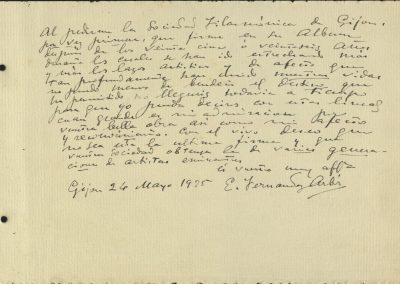 Al pedirme la Sociedad Filarmónica de Gijon,
por vez primera, que firme en su Album
después de los veinte cinco o veintiseis años
durante los cuales se han ido estrechando más
y más los lazos artísticos y de afecto que
tan profundamente han unido nuestras vidas
no puedo menos de bendecir el Destino que
ha permitido llegue todavia a tiempo
para que yo pueda deciros con estas lineas
cuan grande es mi admiracion por
vuestra bella obra asi como mi afecto
y reconocimiento. Con el vivo deseo que
no sea esta la ultima firma y que
vuestra Sociedad obtenga la de varias genera-
ciones de artistas eminentes
es vuestro muy aff=
Gijon 26 Mayo 1935 E. Fernandez Arbós